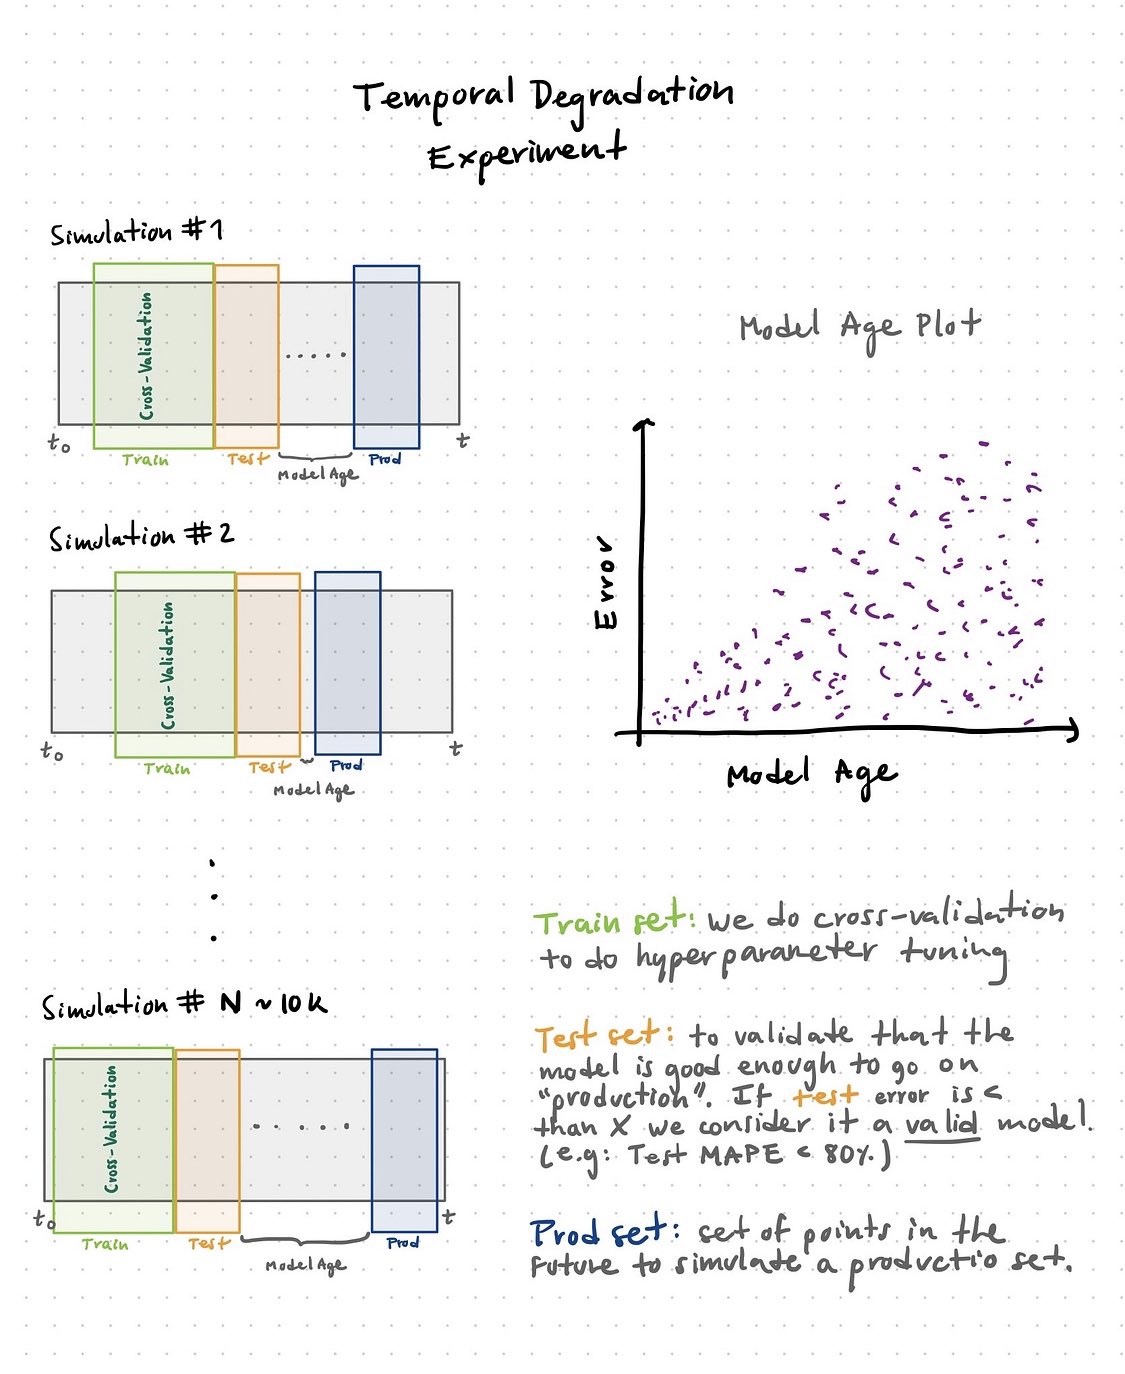 Temporal Degradation
Experiment
Simulation #1
Cross-Validation
t₀
t
Train
Test
Prod
Model Age
Simulation #2
Cross-Validation
t₀
t
Train
Test
Prod
Model Age
Simulation # N ~ 10k
Cross-Validation
t₀
t
Train
Test
Prod
Model Age
Model Age Plot
Error
Model Age
Train set: we do cross-validation
to do hyperparameter tuning
Test set: to validate that the
model is good enough to go on
"production". If test error is <
than X we consider it a valid model.
(e.g: Test MAPE < 80%)
Prod set: set of points in the
future to simulate a productio set.